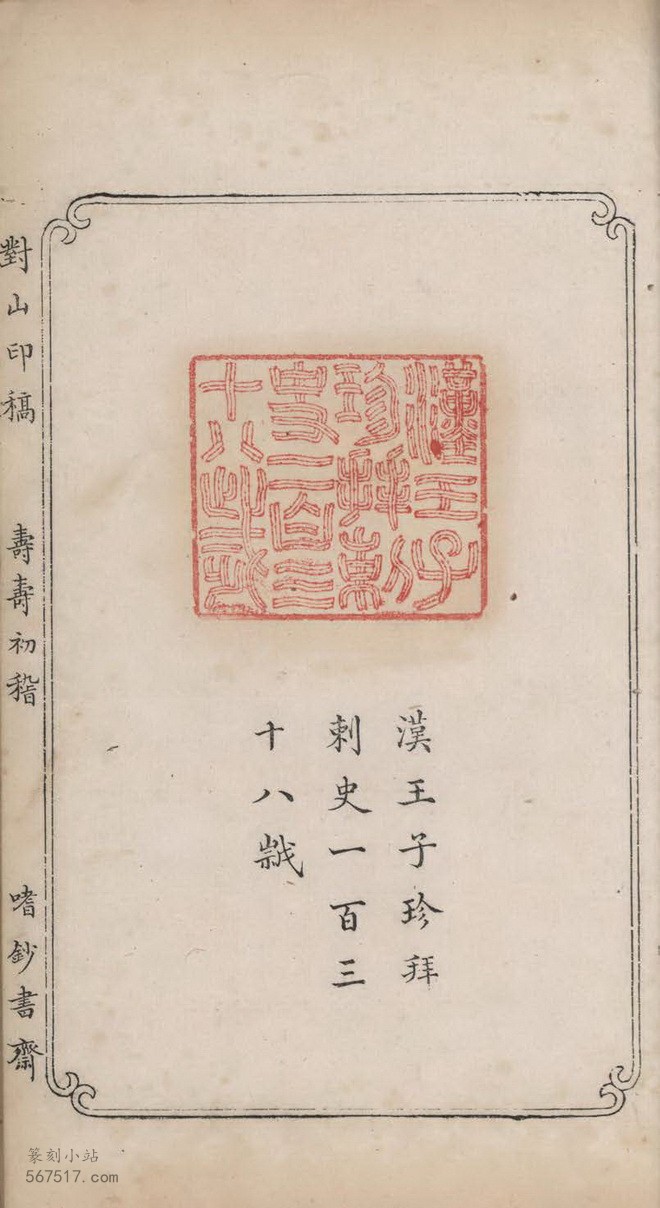 漢王子
珍拜刺
史一百三
十八歳
漢王子珍拜
刺史一百三
十八歳
對山印稿 壽壽初稽 嗜鈔書齋
篆刻小站
567517.com